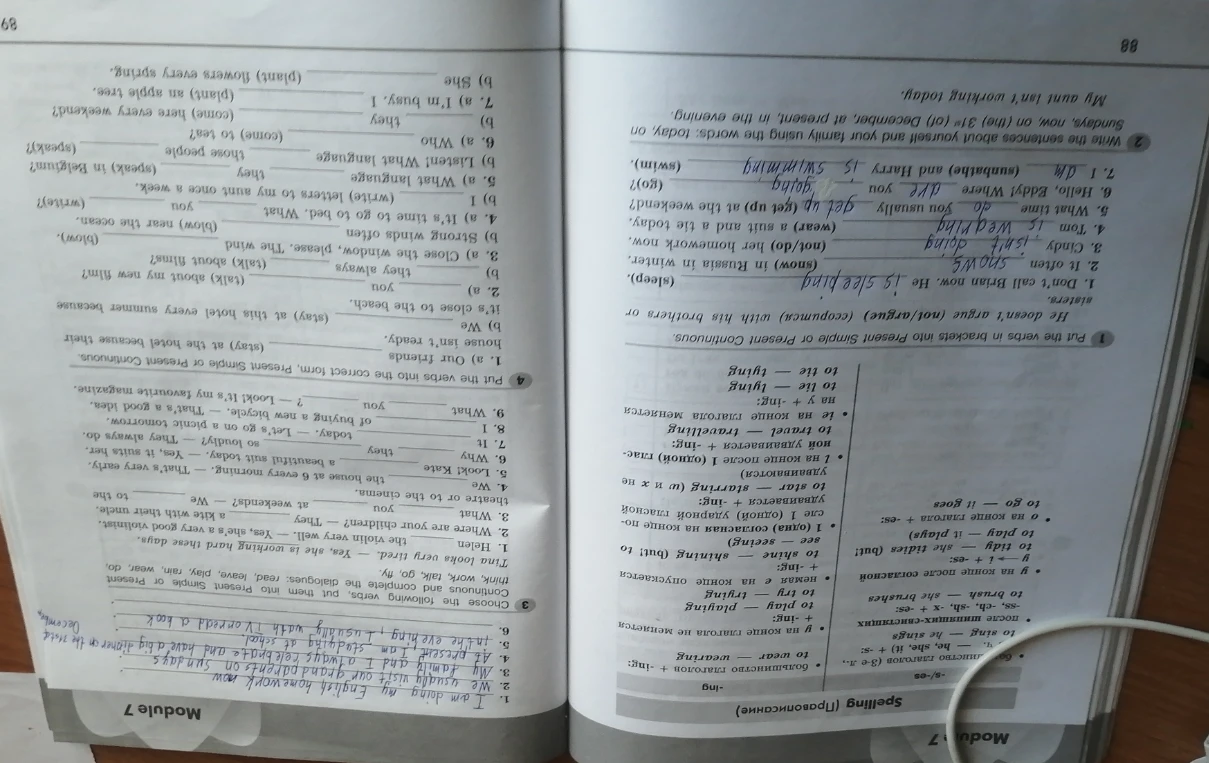 Module 7
Spelling (Правописание)
-s/-es
глаголов (3-е л.,
he, she, it) + -s:
to sing — he sings
после шипящих-свистящих
-ss, -ch, -sh, -x + -es:
to brush — she brushes
• y на конце после согласной
y → i + -es:
to tidy — she tidies (but!
to play — it plays)
• o на конце глагола + -es:
to go — it goes
-ing
• большинство глаголов + -ing:
to wear — wearing
• y на конце глагола не меняется
+ -ing:
to play — playing
to try — trying
• немая e на конце опускается
+ -ing:
to shine — shining (but! to
see — seeing)
• 1 (одна) согласная на конце по-
сле 1 (одной) ударной гласной
удваивается + -ing:
to star — starring (w и x не
удваиваются)
• l на конце после 1 (одной) глас-
ной удваивается + -ing:
to travel — travelling
• ie на конце глагола меняется
на y + -ing:
to lie — lying
to tie — tying
1 Put the verbs in brackets into Present Simple or Present Continuous.
He doesn't argue (not/argue) (ссориться) with his brothers or
sisters.
1. Don't call Brian now. He is sleeping (sleep).
2. It often snows (snow) in Russia in winter.
3. Cindy isn't doing (not/do) her homework now.
4. Tom is wearing (wear) a suit and a tie today.
5. What time do you usually get up (get up) at the weekend?
6. Hello, Eddy! Where are you going (go)?
7. I am (sunbathe) and Harry is swimming (swim).
2 Write the sentences about yourself and your family using the words: today, on
Sundays, now, on (the) 31st (of) December, at present, in the evening.
My aunt isn't working today.
88
Module 7
1. I am doing my English homework now
2. We usually visit our grandparents on Sundays
3. My family and I always celebrate and have a big dinner on the 31st December
4. At present, I am studying at school
5. In the evening, I usually watch TV or read a book
6.
3 Choose the following verbs, put them into Present Simple or Present
Continuous and complete the dialogues: read, leave, play, rain, wear, do,
think, work, talk, go, fly.
Tina looks very tired. — Yes, she is working hard these days.
1. Helen ____ the violin very well. — Yes, she's a very good violinist.
2. Where are your children? — They ____ a kite with their uncle.
3. What ____ you ____ at weekends? — We ____ to the
theatre or to the cinema.
4. We ____ the house at 6 every morning. — That's very early.
5. Look! Kate ____ a beautiful suit today. — Yes, it suits her.
6. Why ____ they ____ so loudly? — They always do.
7. It ____ today. — Let's go on a picnic tomorrow.
8. I ____ of buying a new bicycle. — That's a good idea.
9. What ____ you ____? — Look! It's my favourite magazine.
4 Put the verbs into the correct form, Present Simple or Present Continuous.
1. a) Our friends ____ (stay) at the hotel because their
house isn't ready.
b) We ____ (stay) at this hotel every summer because
it's close to the beach.
2. a) ____ you ____ (talk) about my new film?
b) ____ they always ____ (talk) about films?
3. a) Close the window, please. The wind ____ (blow).
b) Strong winds often ____ (blow) near the ocean.
4. a) It's time to go to bed. What ____ you ____ (write)?
b) I ____ (write) letters to my aunt once a week.
5. a) What language ____ they ____ (speak) in Belgium?
b) Listen! What language ____ those people ____ (speak)?
6. a) Who ____ (come) to tea?
b) ____ they ____ (come) here every weekend?
7. a) I'm busy. I ____ (plant) an apple tree.
b) She ____ (plant) flowers every spring.
89